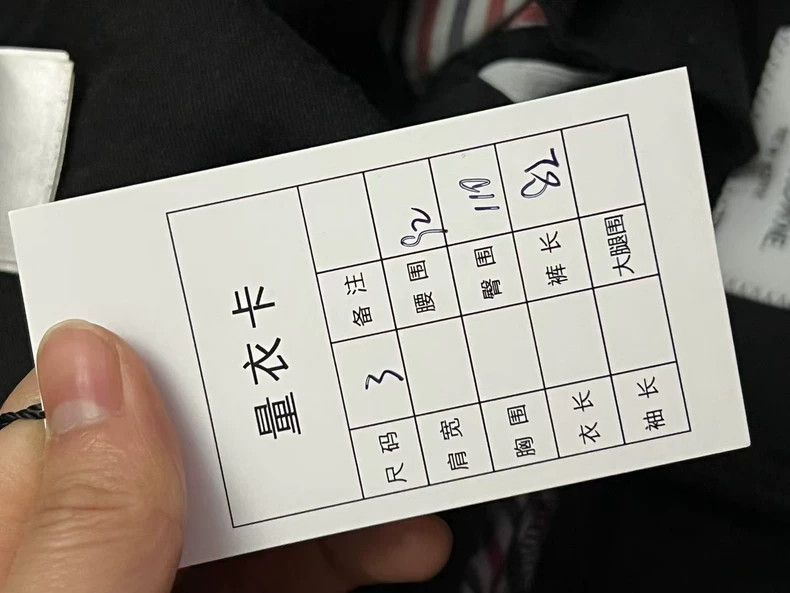 量衣卡
尺码 3 备注
肩宽 腰围 92
胸围 臀围 110
衣长 裤长 82
袖长 大腿围